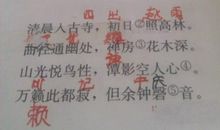 清晨入古寺，初日②照高林。
曲径通幽处，禅房③花木深。
山光悦鸟性，潭影空人心④。
万籁此都寂，但余钟磬⑤音。
籁